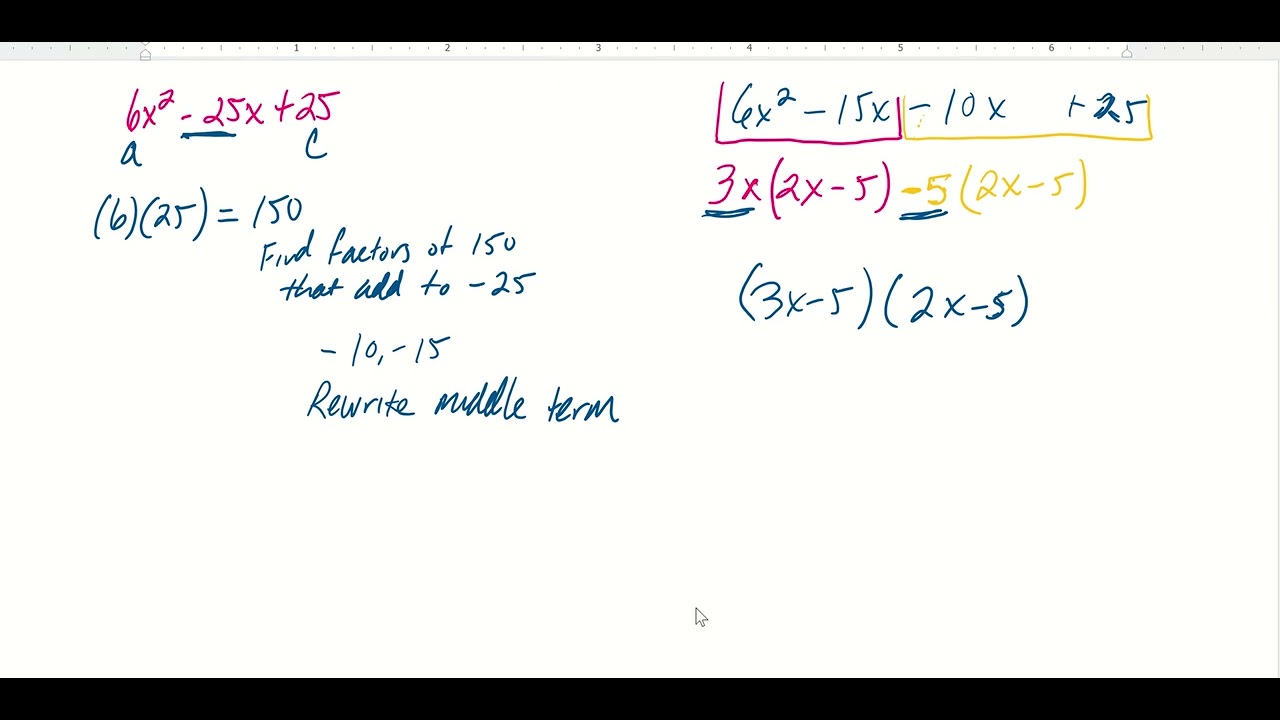 1 2 3 4 5 6
6x² - 25x + 25
a c
(6)(25) = 150
Find factors of 150
that add to -25
-10, -15
Rewrite middle term
6x² - 15x - 10x + 25
3x(2x - 5) - 5(2x - 5)
(3x - 5)(2x - 5)